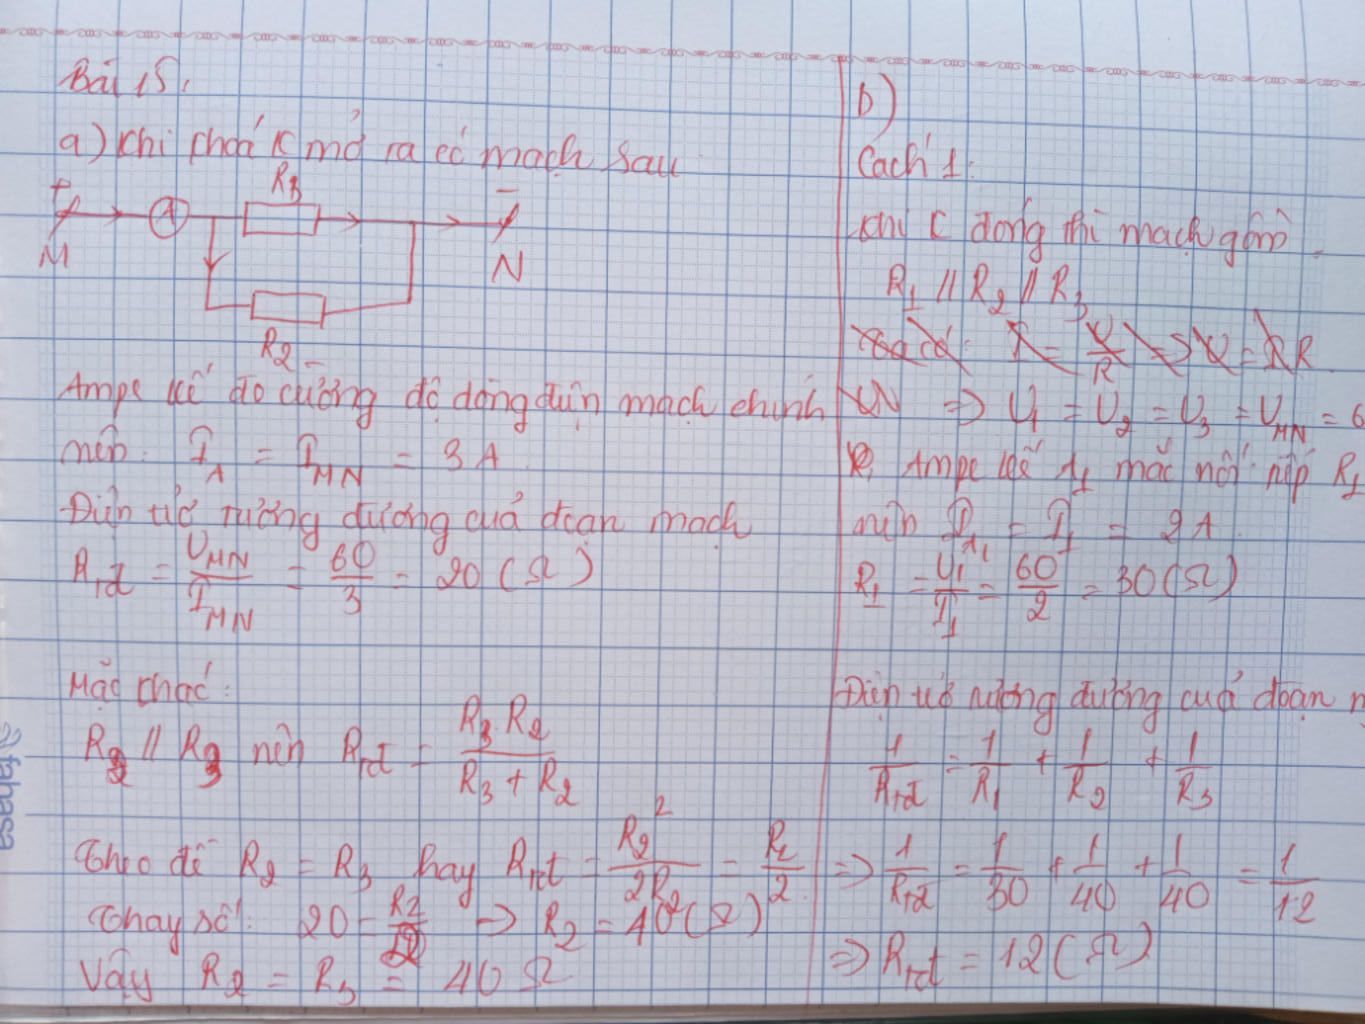 Bài 15:
a) Khi khoá K mở ra có mạch sau
+ A R3 −
M N
R2
Ampe kế đo cường độ dòng điện mạch chính
nên: I_A = I_MN = 3 A
Điện trở tương đương của đoạn mạch
R_tđ = U_MN / I_MN = 60/3 = 20 (Ω)
Mặc khác:
R2 // R3 nên R_tđ = R3 R2 / (R3 + R2)
Theo đề R2 = R3 hay R_tđ = R2² / 2R2 = R2/2
Thay số: 20 = R2/2 => R2 = 40 (Ω)
Vậy R2 = R3 = 40 Ω
b)
Cách 1:
Khi K đóng thì mạch gồm
R1 // R2 // R3
=> U1 = U2 = U3 = U_MN = 6
Ampe kế A1 mắc nối tiếp R1
nên I_A1 = I1 = 2 A
R1 = U1/I1 = 60/2 = 30 (Ω)
Điện trở tương đương của đoạn m
1/R_tđ = 1/R1 + 1/R2 + 1/R3
=> 1/R_tđ = 1/30 + 1/40 + 1/40 = 1/12
=> R_tđ = 12 (Ω)
fahasa